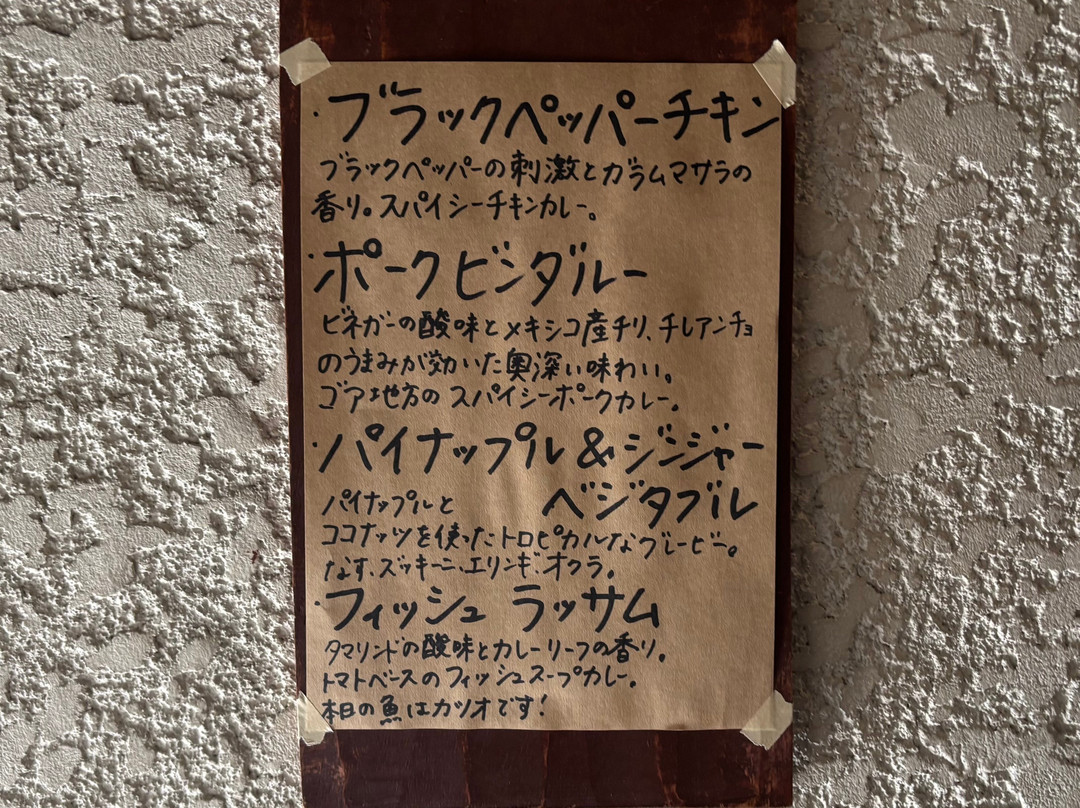 ・ブラックペッパーチキン
ブラックペッパーの刺激とガラムマサラの
香り。スパイシーチキンカレー。
・ポークビンダルー
ビネガーの酸味とメキシコ産チリ、チレアンチョ
のうまみが効いた奥深い味わい。
ゴア地方のスパイシーポークカレー。
・パイナップル&ジンジャー
ベジタブル
パイナップルと
ココナッツを使ったトロピカルなグレービー。
なす、ズッキーニ、エリンギ、オクラ。
・フィッシュ ラッサム
タマリンドの酸味とカレーリーフの香り。
トマトベースのフィッシュスープカレー。
本日の魚はカツオです!